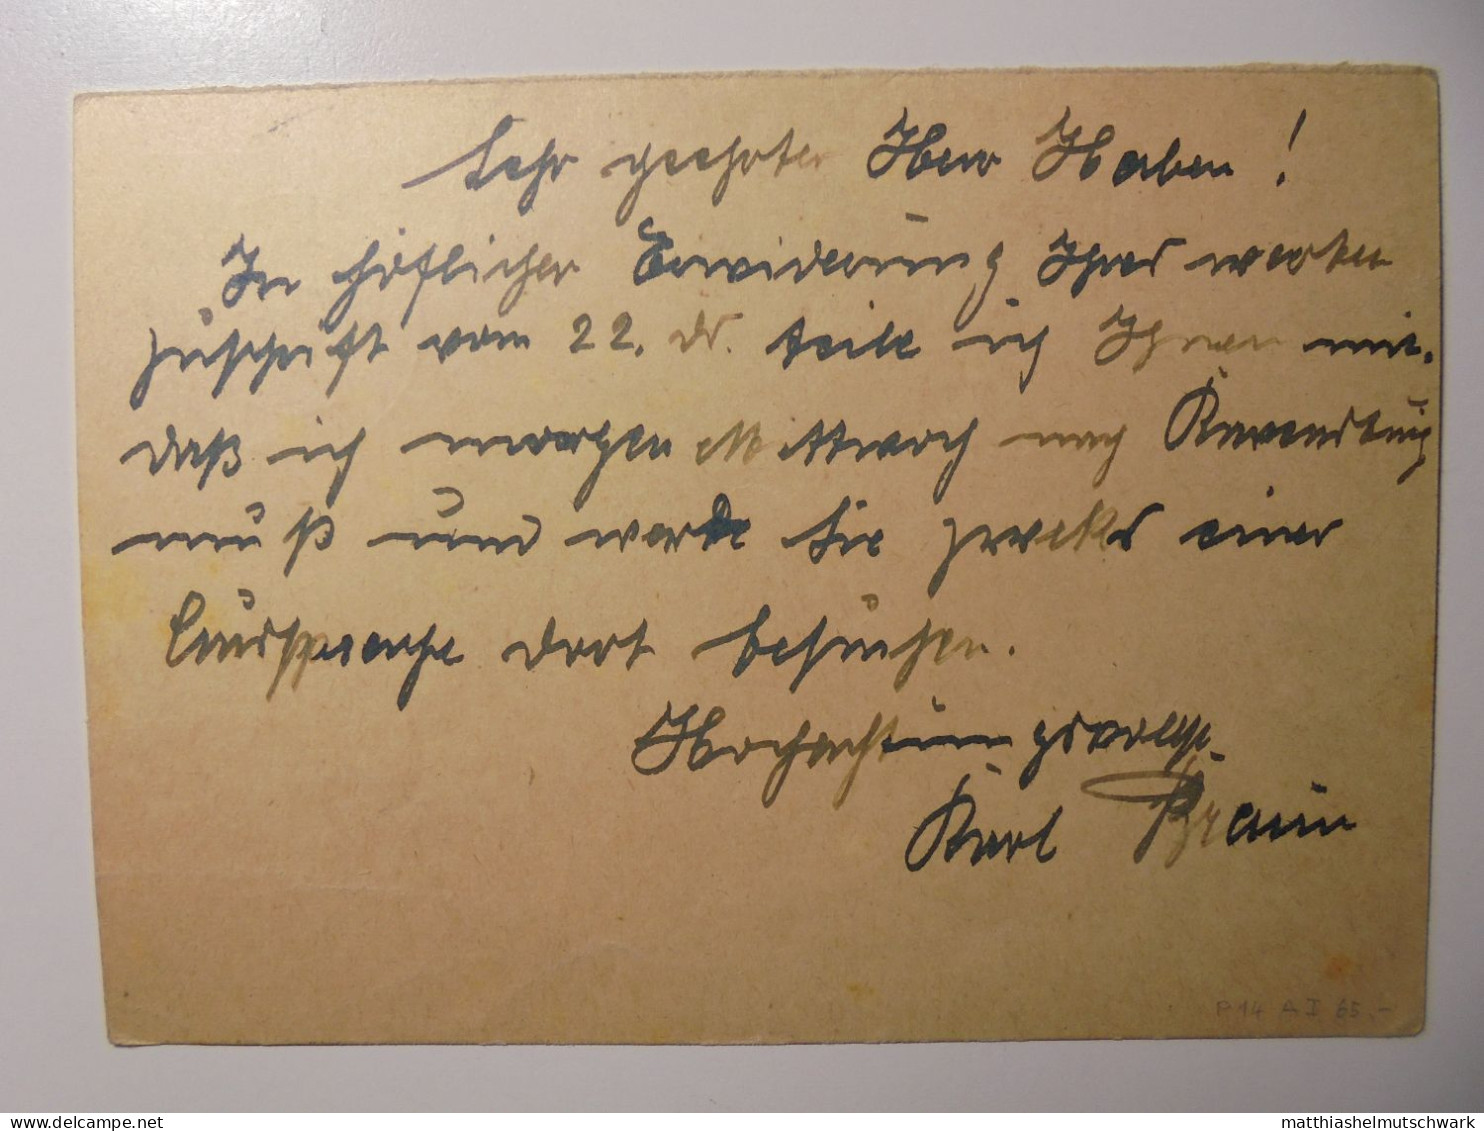 Sehr geehrter Herr Haben!
In höflicher Erwiderung Ihres werten
Zuschrift vom 22. ds. teile ich Ihnen mit.
daß ich morgen Mittwoch nach
muß und werde Sie zwecks einer
Aussprache dort besuchen.
Hochachtungsvollst.
Karl Braun
P 14 A I 65.-
matthiashelmutschwark